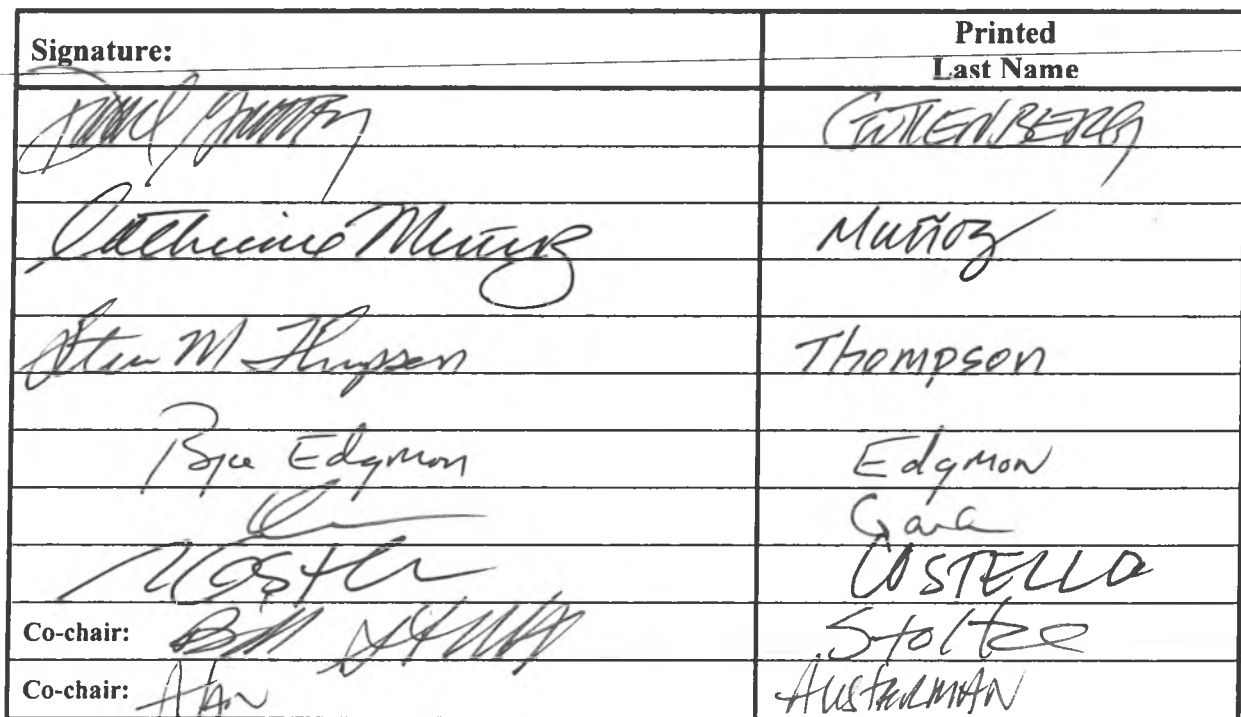 Signature: Printed
Last Name
GUTTENBERG
Catherine Muñoz Muñoz
Steve M Thompson Thompson
Bryce Edgmon Edgmon
Gara
COSTELLO
Co-chair: Bill Stoltze Stoltze
Co-chair: Alan AUSTERMAN